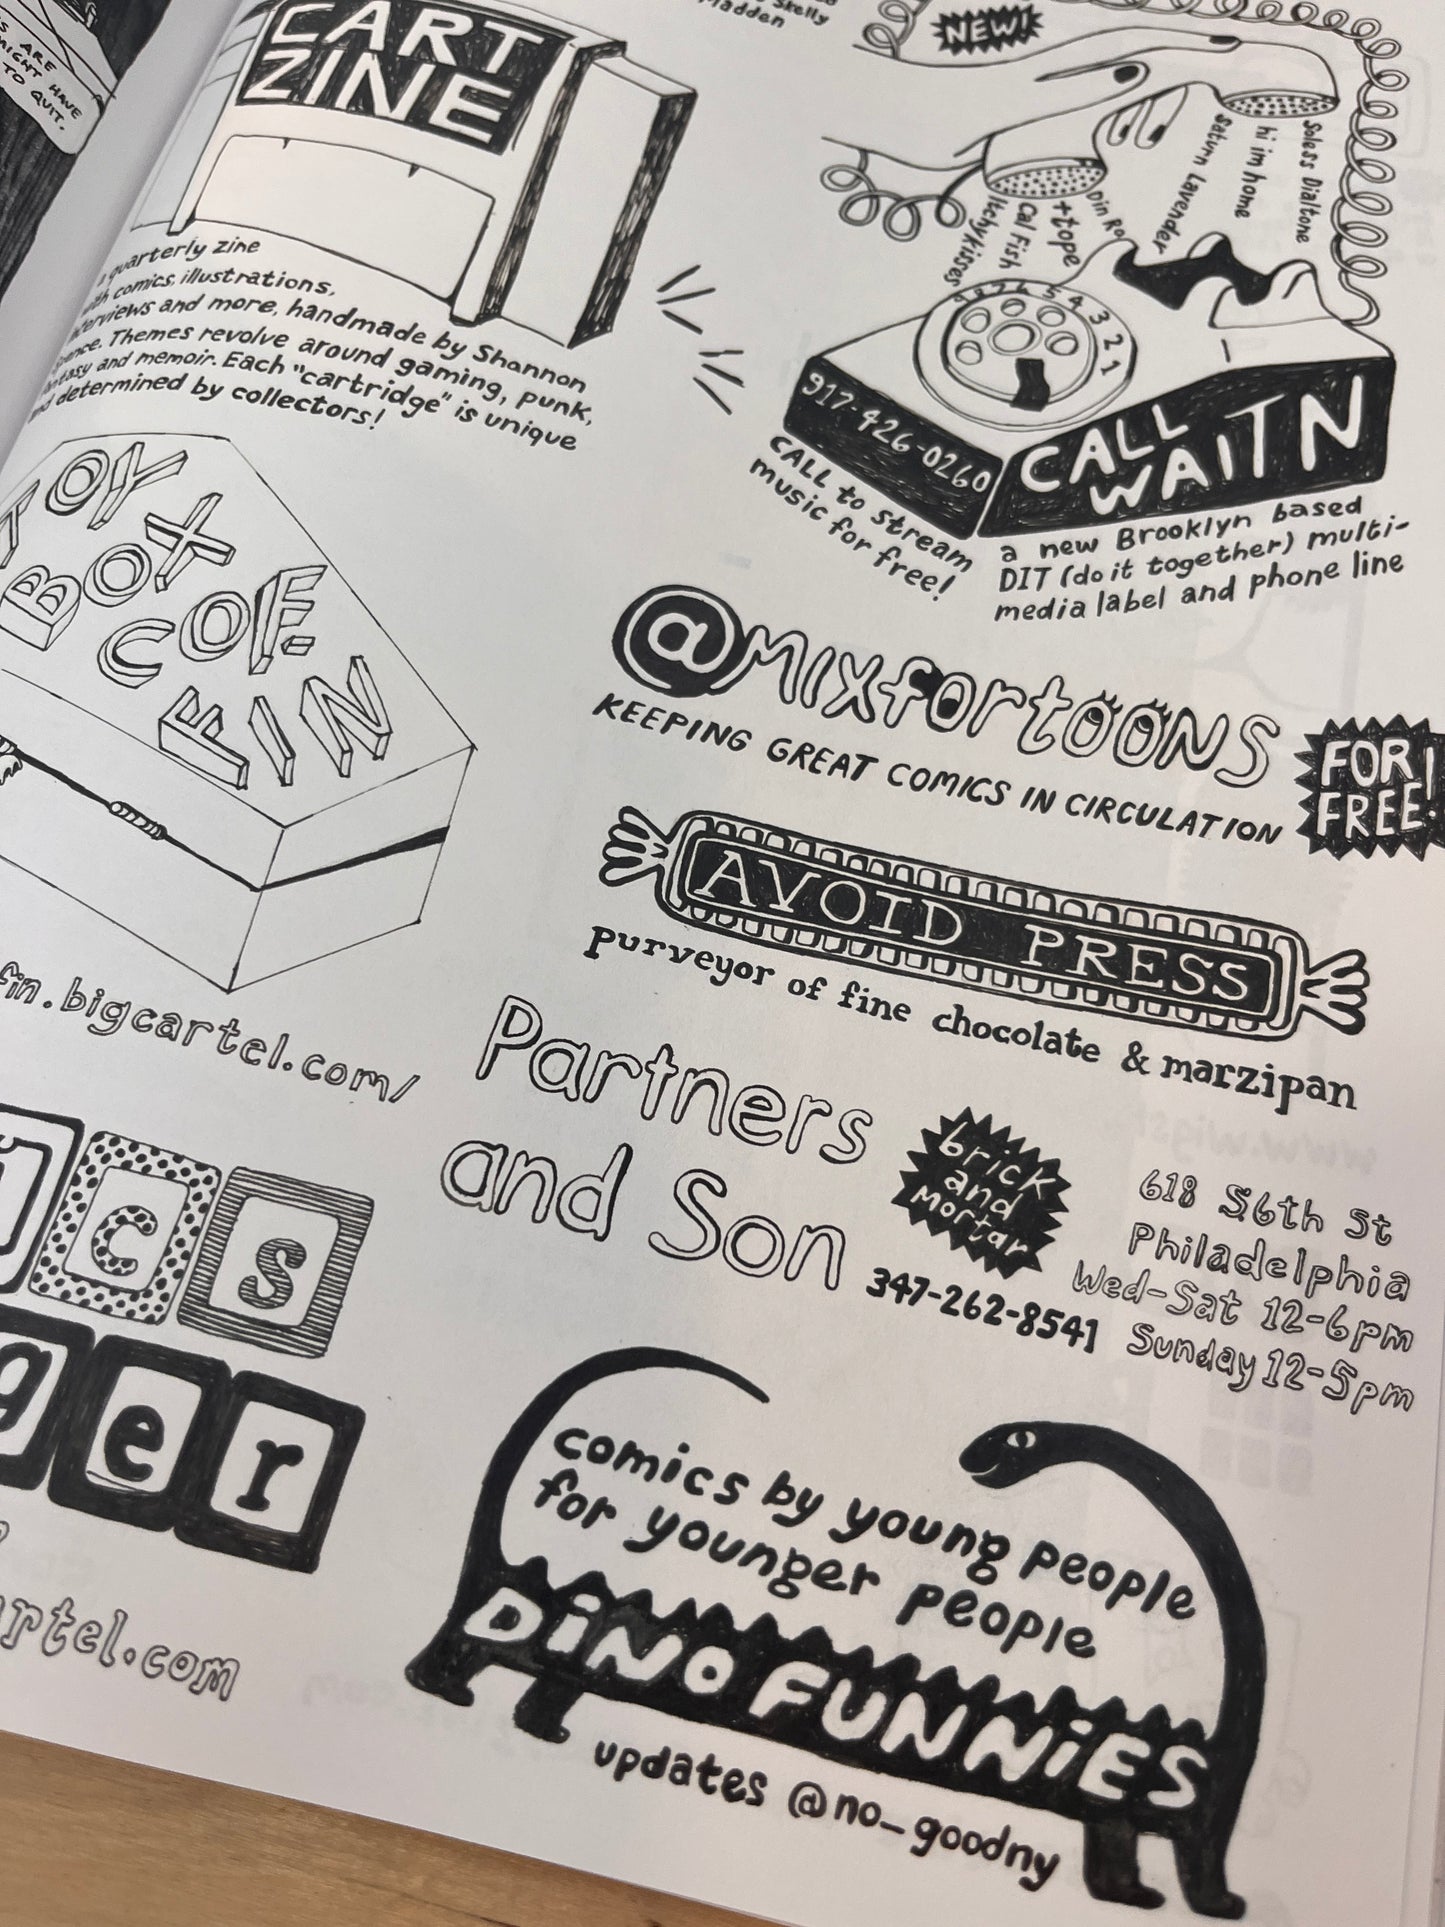 ARE
MIGHT HAVE
TO QUIT.
Skelly
Madden
CART
ZINE
quarterly zine
with comics, illustrations,
interviews and more, handmade by Shannon
Themes revolve around gaming, punk,
and memoir. Each "cartridge" is unique
and determined by collectors!
NEW!
Soless Dialtone
hi im home
Saturn Lavender
Din Ro
+tope
Cal Fish
Itchy Kisses
6 5 4 3 2 1
917-426-0260
CALL
WAITN
CALL to stream
music for free!
a new Brooklyn based
DIT (do it together) multi-
media label and phone line
TOY
BOX
COF-
FIN
fin.bigcartel.com/
@Mixfortoons
KEEPING GREAT COMICS IN CIRCULATION
FOR!
FREE!
AVOID PRESS
purveyor of fine chocolate & marzipan
Partners
and Son
brick
and
mortar
347-262-8541
618 S. 6th St
Philadelphia
Wed-Sat 12-6pm
Sunday 12-5pm
ics
ger
artel.com
comics by young people
for younger people
DiNO FUNNiES
updates @no_goodny